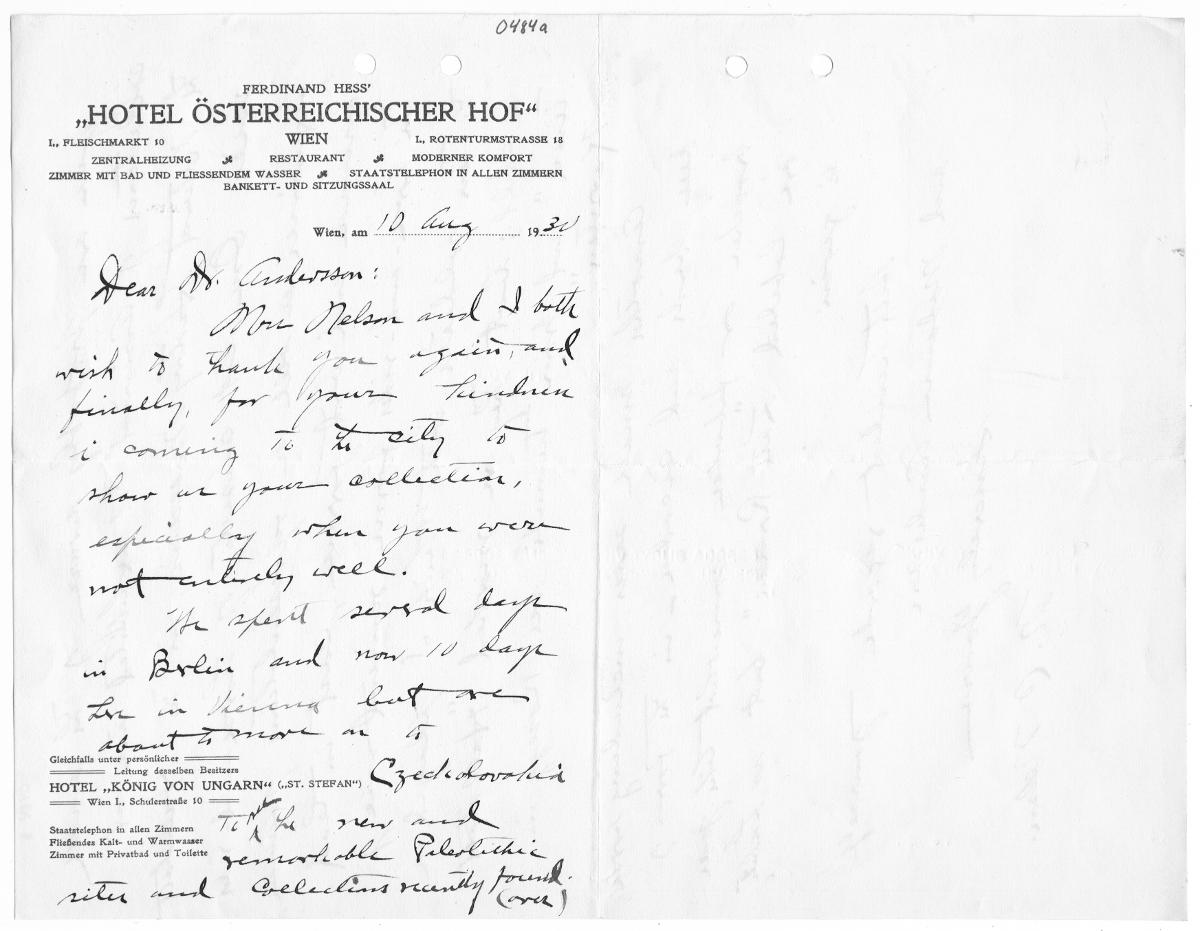 0484a
FERDINAND HESS'
„HOTEL ÖSTERREICHISCHER HOF“
I., FLEISCHMARKT 10 WIEN I., ROTENTURMSTRASSE 18
ZENTRALHEIZUNG RESTAURANT MODERNER KOMFORT
ZIMMER MIT BAD UND FLIESSENDEM WASSER STAATSTELEPHON IN ALLEN ZIMMERN
BANKETT- UND SITZUNGSSAAL
Wien, am 10 Aug 1930
Dear Dr. Andersson:
Mrs Nelson and I both
wish to thank you again, and
finally, for your kindness
i coming to the city to
show us your collection,
especially when you were
not entirely well.
We spent several days
in Berlin and now 10 days
here in Vienna but are
about to move on to
Gleichfalls unter persönlicher
Leitung desselben Besitzers
Czechoslovakia
HOTEL „KÖNIG VON UNGARN“ („ST. STEFAN“)
Wien I., Schulerstraße 10
to see the new and
Staatstelephon in allen Zimmern
Fließendes Kalt- und Warmwasser
Zimmer mit Privatbad und Toilette
remarkable Paleolithic
sites and collections recently found.
(over)